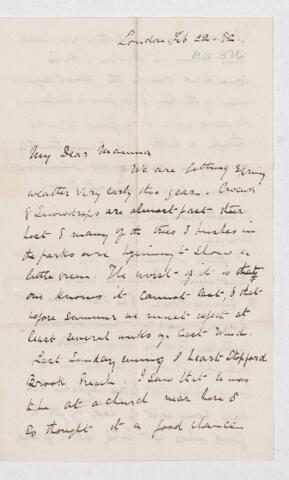 London Feb 22. 82.
My Dear Mamma
We are getting Spring
weather very early this year. Crocus
& Snowdrops are almost past their
best & many of the trees & bushes in
the parks are beginning to show a
little green. The worst of it is that
one knows it cannot last, & that
before summer we must expect at
least several weeks of East Wind.
Last Sunday evening I heard Stopford
Brook Preach. I saw that he was
to be at a church near here &
so thought it a good chance